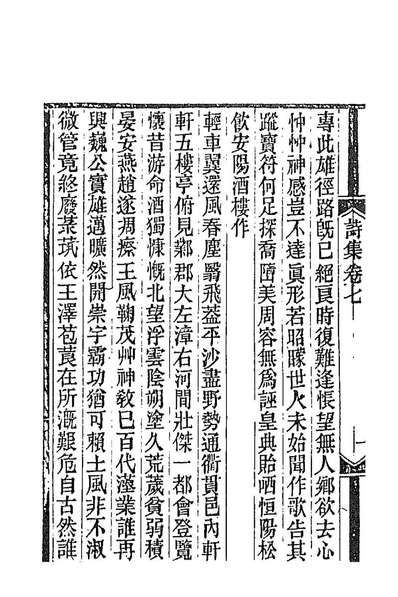 詩集卷七
一
專此雄徑路旣已絕良時復難逢悵望無人鄉欲去心
忡忡神感豈不達眞形若昭矇世人未始聞作歌告其
蹤寶符何足探喬墮美周容無爲誣皇典貽哂恒陽松
飮安陽酒樓作
輕車翼還風春塵翳飛葢平沙盡野勢通衢貫邑內軒
軒五樓亭俯見鄴郡大左漳右河間壯傑一都會登覽
懷昔游命酒獨慷慨北望浮雲陰朔塗久荒薉貧弱積
晏安燕趙遂凋瘵王風鞠茂艸神敎已百代業誰再
興魏公實雄邁曠然開崇宇霸功猶可賴土風非不淑
微管竟終廢依王澤苞莨在所漑艱危自古然誰